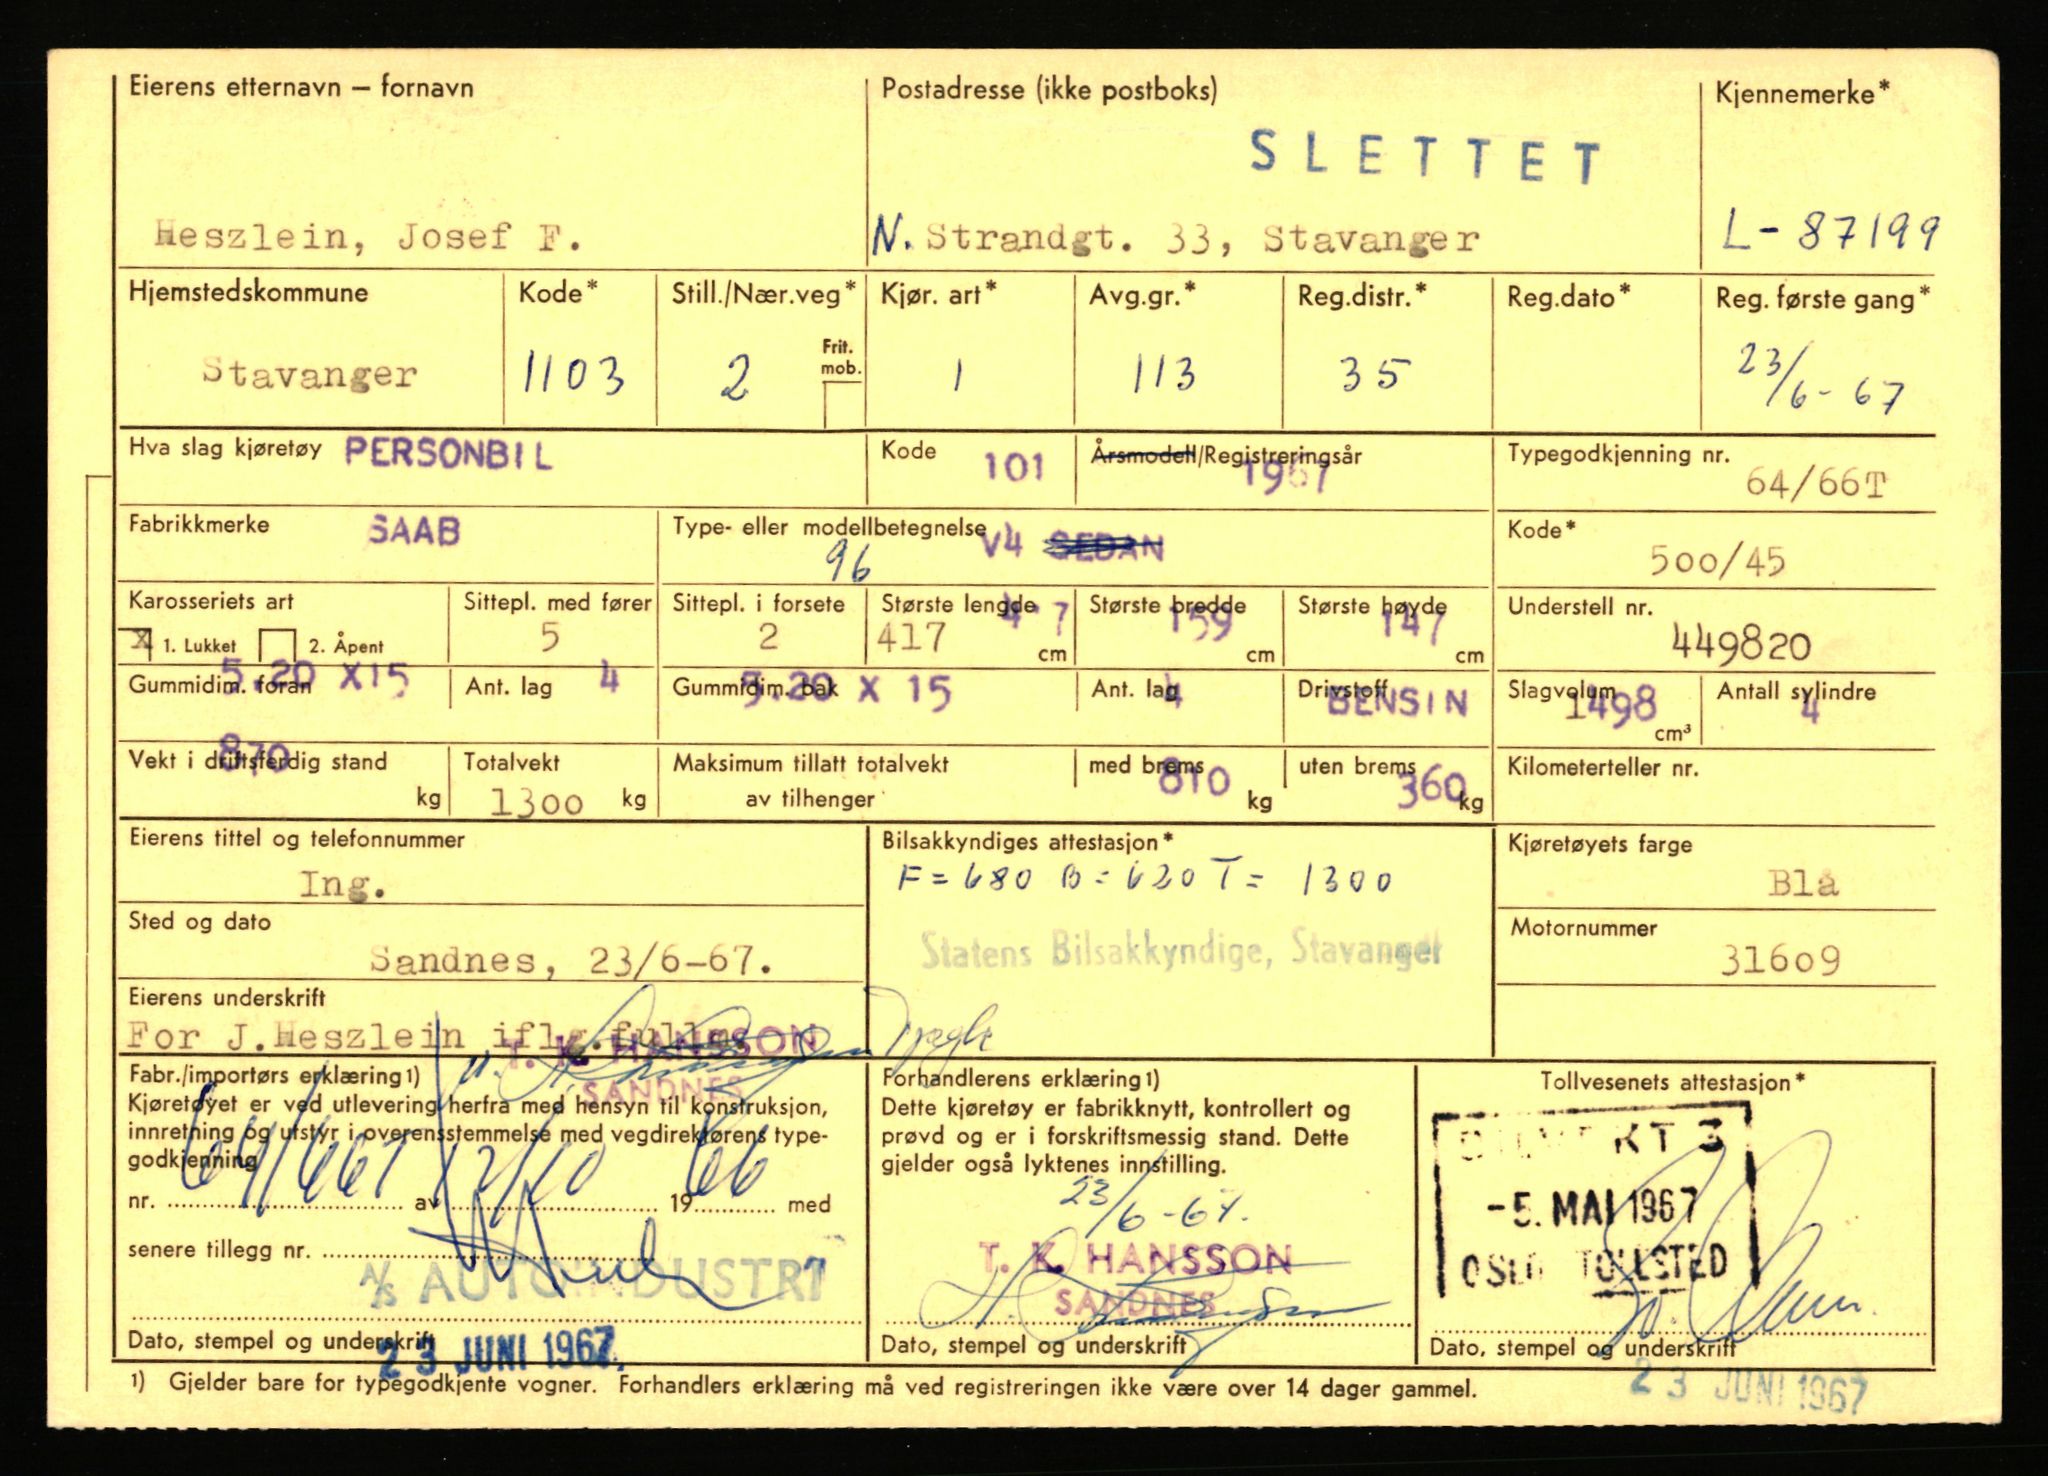 Eierens etternavn – fornavn
Postadresse (ikke postboks)
Kjennemerke*
SLETTET
Heszlein, Josef F.
N. Strandgt. 33, Stavanger
L-87199
Hjemstedskommune
Kode*
Still./Nær.veg*
Frit. mob.
Kjør. art*
Avg.gr.*
Reg.distr.*
Reg.dato*
Reg. første gang*
Stavanger
1103
2
1
113
35
23/6-67
Hva slag kjøretøy PERSONBIL
Kode 101
Årsmodell/Registreringsår
1967
Typegodkjenning nr.
64/66T
Fabrikkmerke SAAB
Type- eller modellbetegnelse
96 V4 SEDAN
Kode*
500/45
Karosseriets art
X 1. Lukket 2. Åpent
Sittepl. med fører
5
Sittepl. i forsete
2
Største lengde
417 cm
Største bredde
159 cm
Største høyde
147 cm
Understell nr.
449820
Gummidim. foran
5.20 X 15
Ant. lag 4
Gummidim. bak
5.20 X 15
Ant. lag
4
Drivstoff
BENSIN
Slagvolum
1498 cm³
Antall sylindre
4
Vekt i driftsferdig stand
870 kg
Totalvekt
1300 kg
Maksimum tillatt totalvekt
av tilhenger
med brems
810 kg
uten brems
360 kg
Kilometerteller nr.
Eierens tittel og telefonnummer
Ing.
Bilsakkyndiges attestasjon*
F=680 B=620 T=1300
Kjøretøyets farge
Blå
Sted og dato
Sandnes, 23/6-67.
Statens Bilsakkyndige, Stavanger
Motornummer
31609
Eierens underskrift
For J.Heszlein iflg.fullm.
T. K. HANSSON
SANDNES
Fabr./importørs erklæring1)
Kjøretøyet er ved utlevering herfra med hensyn til konstruksjon,
innretning og utstyr i overensstemmelse med vegdirektørens type-
godkjenning
nr. 64/66T av 12/10 1966 med
senere tillegg nr.
A/S AUTOINDUSTRI
Dato, stempel og underskrift
23 JUNI 1967.
Forhandlerens erklæring1)
Dette kjøretøy er fabrikknytt, kontrollert og
prøvd og er i forskriftsmessig stand. Dette
gjelder også lyktenes innstilling.
23/6-67.
T. K. HANSSON
SANDNES
Dato, stempel og underskrift
Tollvesenets attestasjon*
-5. MAI 1967
OSLO TOLLSTED
Dato, stempel og underskrift
23 JUNI 1967
1) Gjelder bare for typegodkjente vogner. Forhandlers erklæring må ved registreringen ikke være over 14 dager gammel.